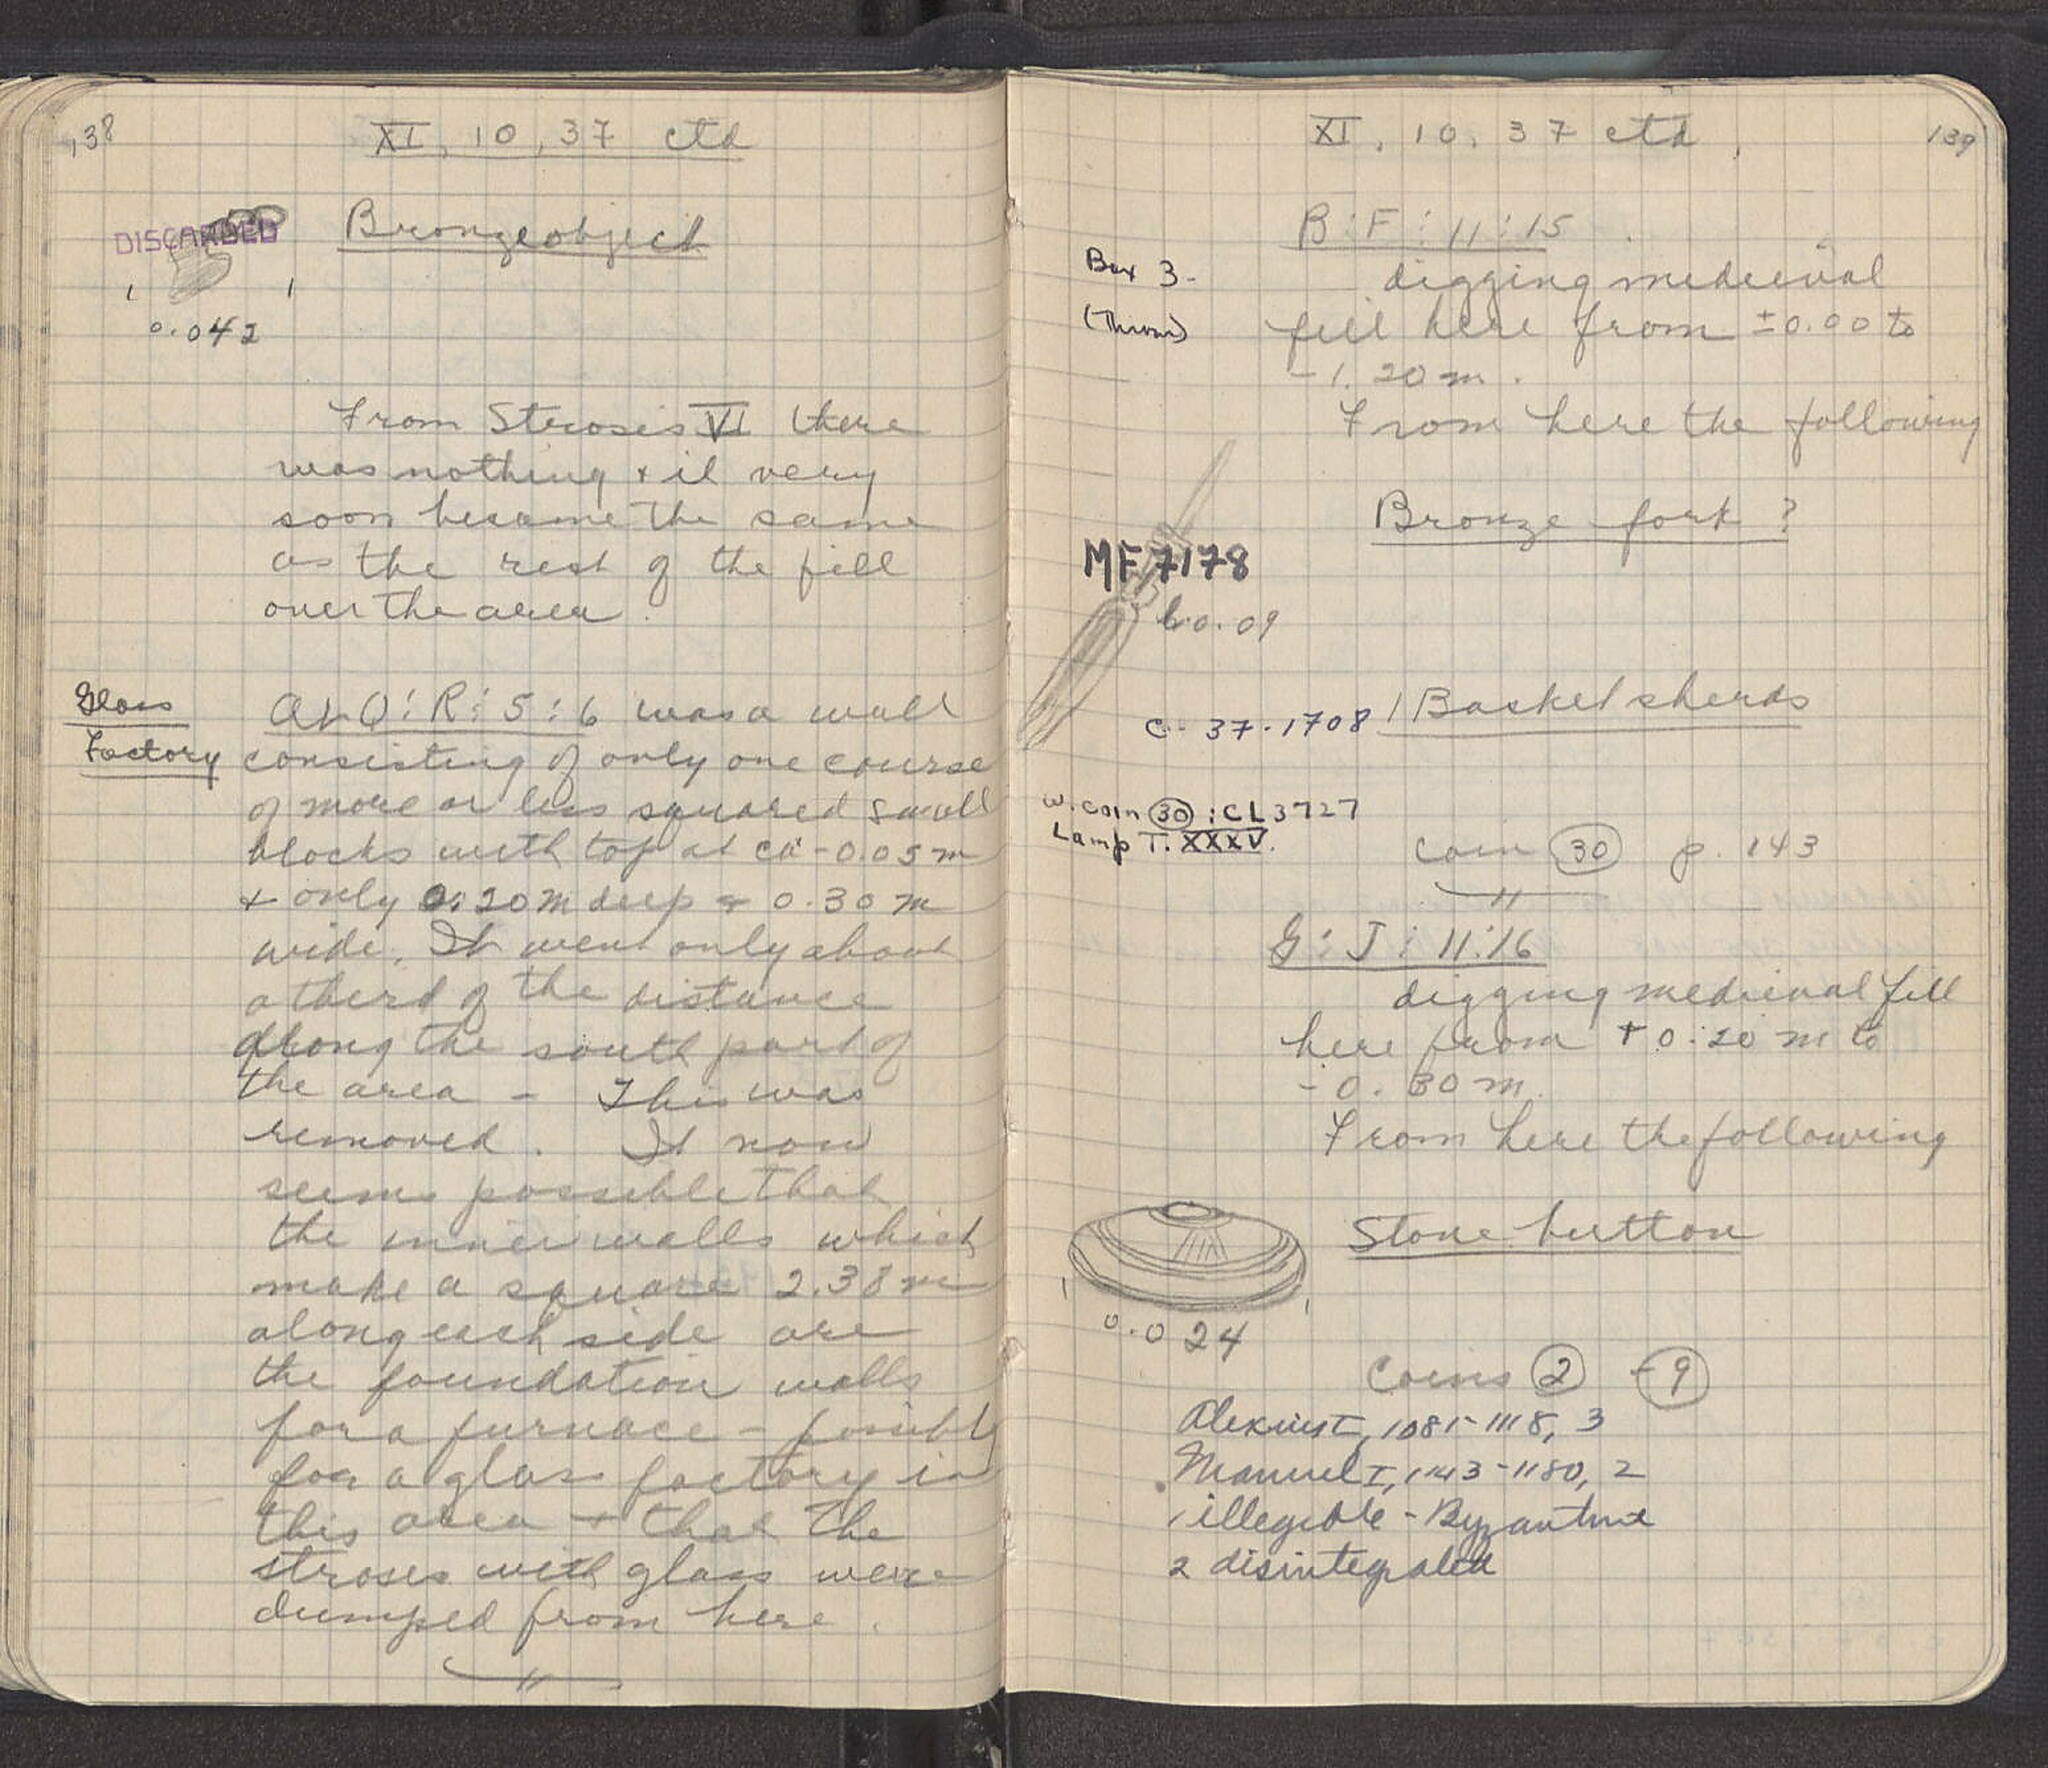 138
XI, 10, 37 ctd
DISCARDED
Bronze object
0.042
From Sterosis VI there
was nothing + it very
soon became the same
as the rest of the fill
over the area.
Glass
Factory
At Q:R:5:6 was a wall
consisting of only one course
of more or less squared small
blocks with top at ca -0.05m
+ only 0.20m deep + 0.30m
wide. It went only about
a third of the distance
along the south part of
the area - This was
removed. It now
seems possible that
the inner walls which
make a square 2.38m
along each side are
the foundation walls
for a furnace - possibly
for a glass factory in
this area + that the
stroses with glass were
dumped from here.
XI, 10, 37 ctd.
139
B:F:11:15
Box 3-
(Thrown)
digging medieval
fill here from ±0.00 to
-1.20m.
From here the following
Bronze fork?
MF 7178
L.0.09
C-37-1708
1 Basket sherds
w. coin 30 : CL3727
Lamp T. XXXV.
coin 30 p. 143
G:J:11:16
digging medieval fill
here from +0.20m to
-0.80m.
From here the following
Stone button
0.024
Coins 2 - 9
Alexius I, 1081-1118, 3
Manuel I, 1143-1180, 2
1 illegible - Byzantine
2 disintegrated